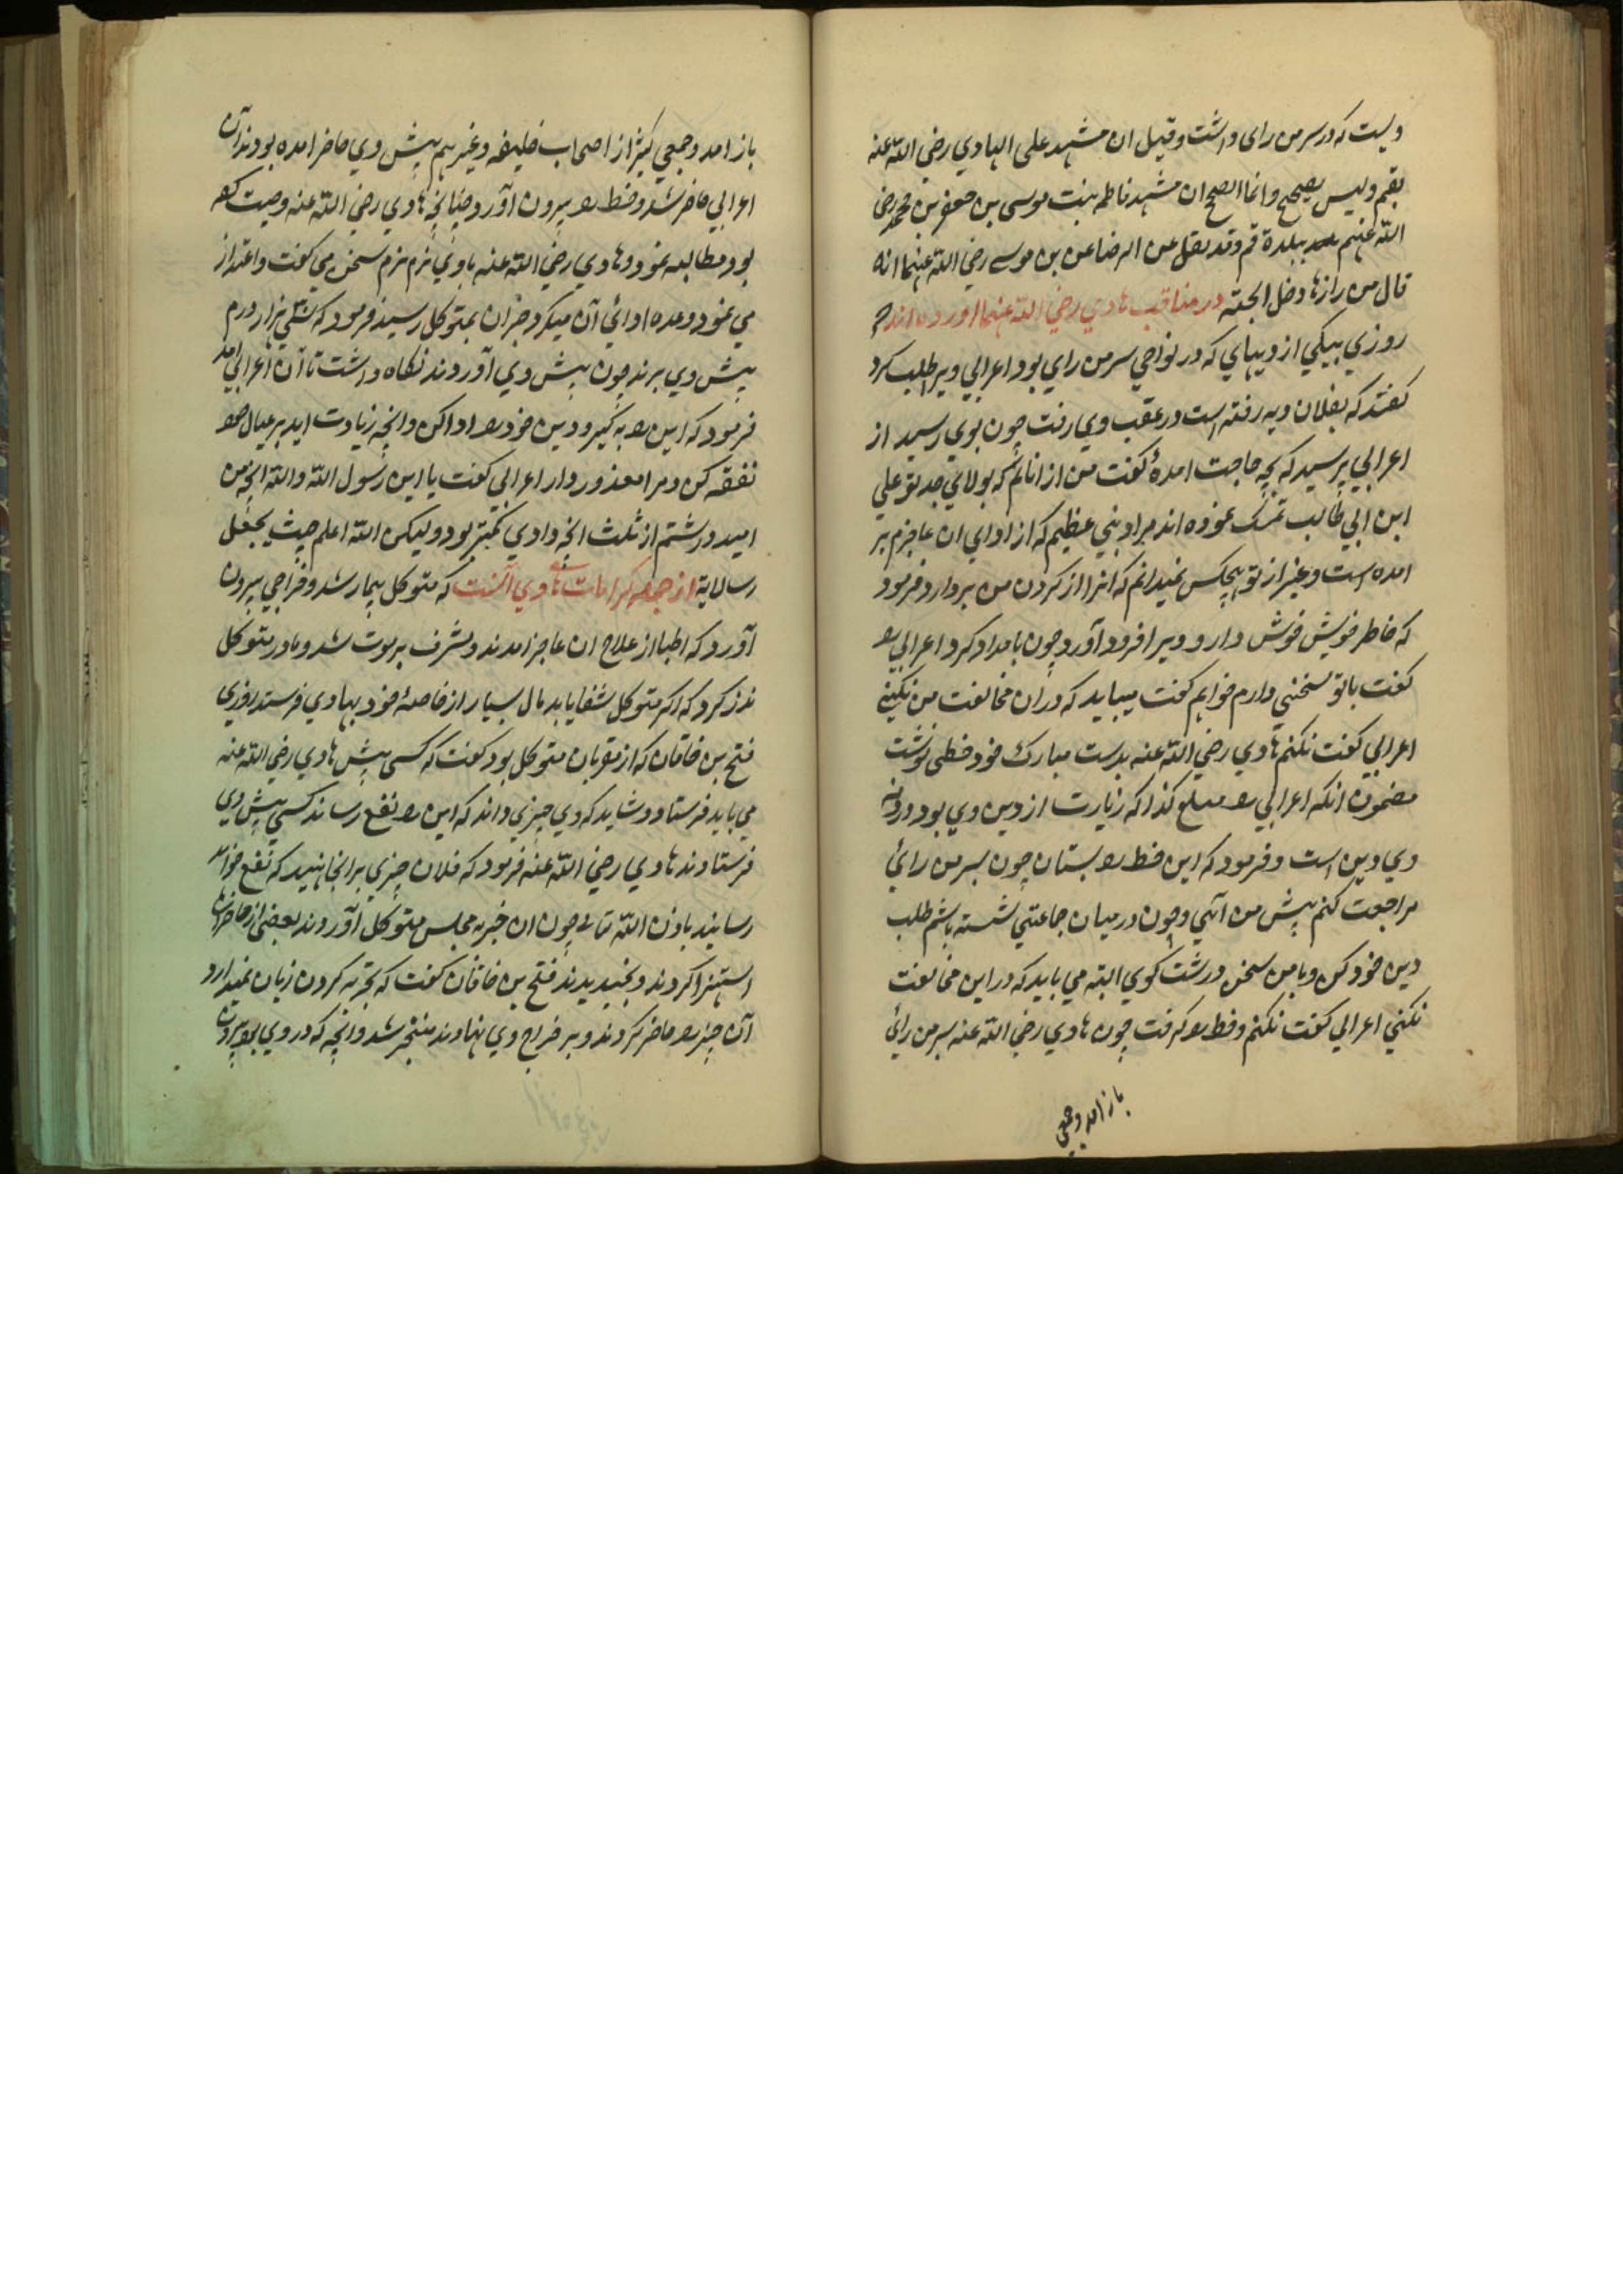 ویست که در سر من رای داشت و قیل ان مشهد علی الهادي رضي اللّه عنه
بقم ولیس بصحیح وانما الصحیح ان مشهد فاطمه بنت موسی بن جعفر بن محمد رضی
اللّه عنهم ببلدة قم وقد نقل عن الرضا عن بن موسی رضي اللّه عنهما انه
قال من زارها دخل الجنة در مناقب هادي رضي اللّه عنهما اورده اند که
روزي بیکي از دیهاي که در نواحي سر من راي بود اعرابي ویرا طلب کرد
کفتند که بفلان دیه رفته است در عقب وي رفت چون بوي رسید از
اعرابي پرسید که بچه حاجت امدهٔ کفت من از انانم که بولاي جد تو علي
ابن ابي طالب تمسک نموده اند مرا دیني عظیم که از اداي ان عاجزم بر
امده است و غیر از تو هیچکس نمیدانم که انرا از کردن من بردارد فرمود
که خاطر خویش خوش دار و ویرا فرود آورد چون بامداد کرد اعرابي را
کفت با تو سخني دارم خواهم کفت میباید که دران مخالفت من نکني
اعرابي کفت نکنم هادي رضي اللّه عنه بدست مبارک خود خطی نوشت
مضمون انکه اعرابي را مبلغ کذا که زیارت از دین وي بود در ذمه
وي دین است و فرمود که این خط را بستان چون بسر من رائ
مراجعت کنم پیش من آئي و چون در میان جماعتي نشسته باشم طلب
دین خود کن و با من سخن درشت کوي البته مي باید که در این مخالفت
نکني اعرابي کفت نکنم و خط را کرفت چون هادي رضي اللّه عنه بسر من رائ
باز امد و جمعی
باز امد و جمعي کثیر از اصحاب خلیفه و غیر هم پیش وي حاضر امده بودند آن
اعرابي حاضر شد و خط را بیرون آورد چنانچه هادي رضي اللّه عنه وصیت کرده
بود مطالبه نمود و هادي رضي اللّه عنه باوي نرم نرم سخن مي کفت و اعتذار
مي نمود و وعده ادائي آن میکرد خبر ان بمتوکل رسید فرمود که سي هزار درم
پیش وي برند چون پیش وي آوردند نکاه داشت تا آن اعرابي امد
فرمود که این را بکیر و دین خود را ادا کن و انچه زیادت اید بر عیال خود
نفقه کن و مرا معذور دار اعرابي کفت یا ابن رسول اللّه واللّه انچه من
امید داشتم از ثلث انچه دادي کمتر بود ولیکن اللّه اعلم حیث یجعل
رسالاته از جمله کرامات هادي آنست که متوکل بیمار شد و خراجي بیرون
آورد که اطبا از علاج ان عاجز امدند و مشرف بر موت شد و مادر متوکل
نذر کرد که اکر متوکل شفا یابد مال بسیار از خاصهٔ خود بهادي فرستد روزي
فتح بن خاقان که از مقربان متوکل بود کفت که کسی پیش هادي رضي اللّه عنه
مي باید فرستاد و شاید که وي چیزي داند که این را نفع رساند کسي پیش وي
فرستادند هادي رضي اللّه عنه فرمود که فلان چیزي بر انجا نهید که نفع خواهد
رسانید باذن اللّه تعالی چون ان خبر به مجلس متوکل آوردند بعضی از حاضران
استهزا کردند و بخندیدند فتح بن خاقان کفت که تجربه کردن زیان نمیدارد
آن چیز را حاضر کردند و بر خراج وي نهادند منفجر شد و انچه که در وي بود بیرون